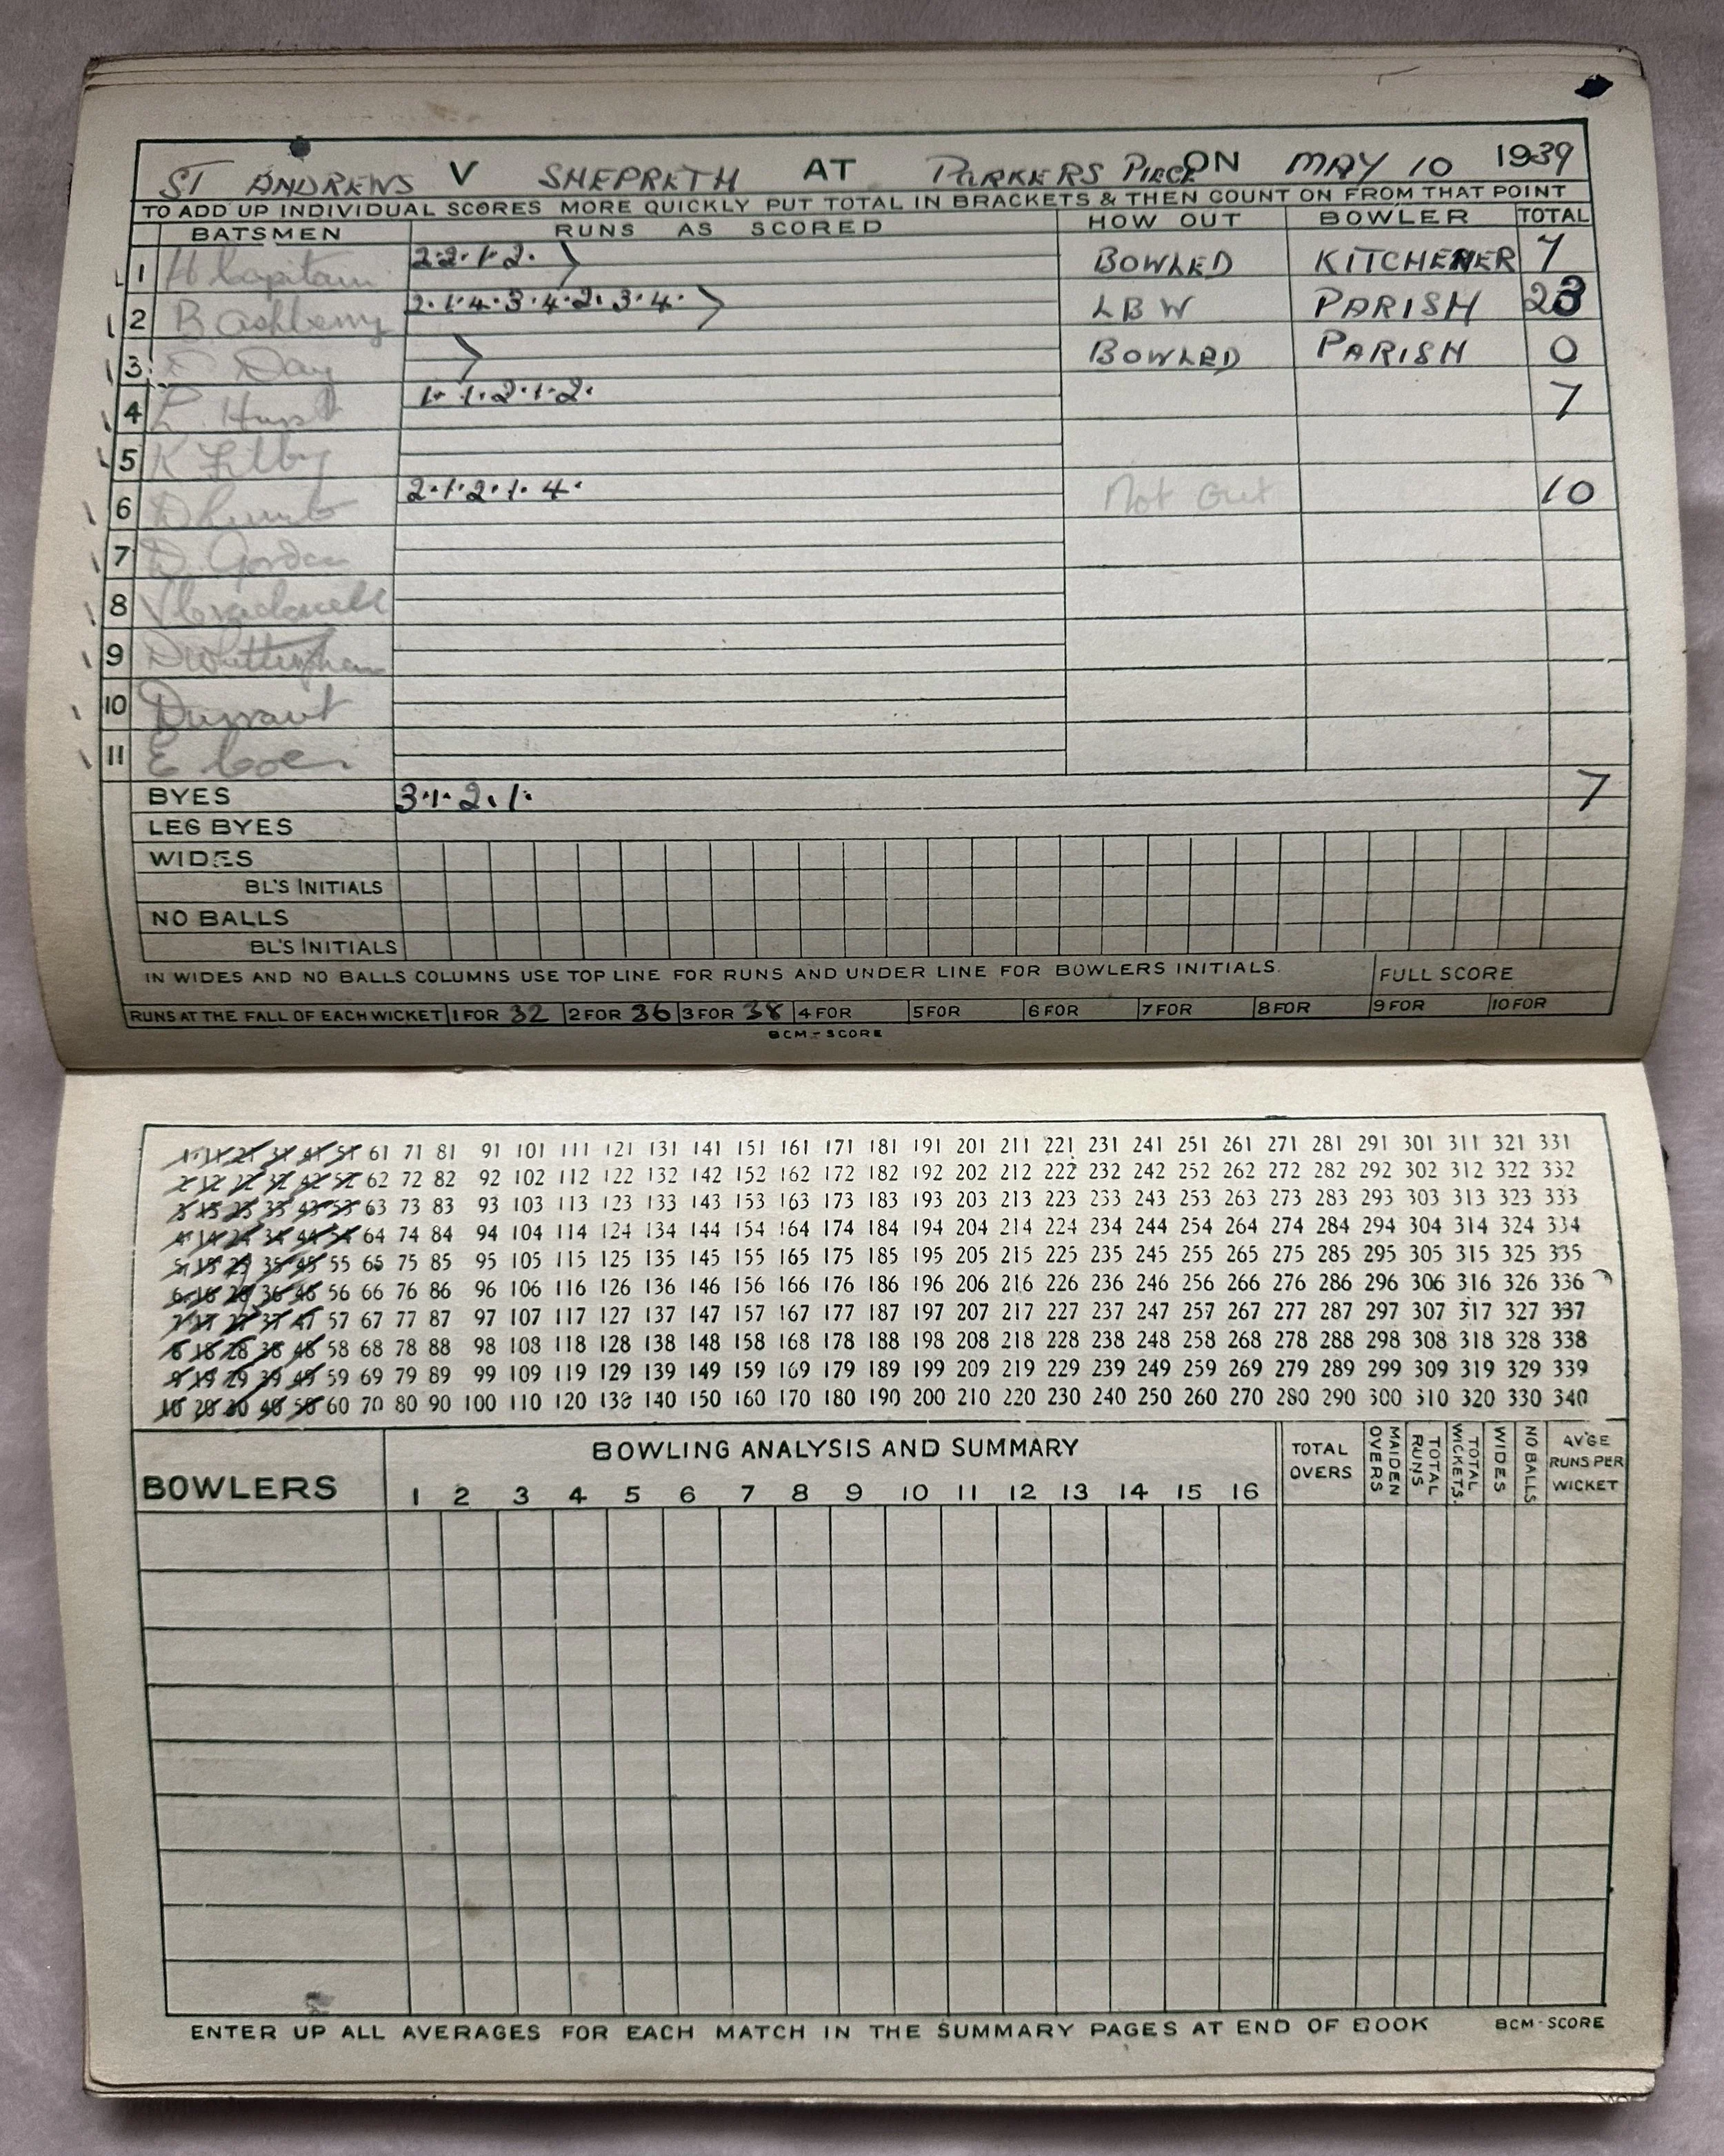 ST ANDREWS V SHEPRETH AT PARKERS PIECE ON MAY 10 1939
TO ADD UP INDIVIDUAL SCORES MORE QUICKLY PUT TOTAL IN BRACKETS & THEN COUNT ON FROM THAT POINT
BATSMEN RUNS AS SCORED HOW OUT BOWLER TOTAL
1 H Capitain 2·2·1·2· BOWLED KITCHENER 7
2 B. Ashberry 2·1·4·3·4·2·3·4· LBW PARISH 23
3 Day BOWLED PARISH 0
4 L. Hurst 1·1·2·1·2· 7
5 K Filby
6 2·1·2·1·4· Not Out 10
7 D. Gordon
8
9 D Whittingham
10 Durrant
11 E Coe
BYES 3·1·2·1· 7
LEG BYES
WIDES
BL'S INITIALS
NO BALLS
BL'S INITIALS
IN WIDES AND NO BALLS COLUMNS USE TOP LINE FOR RUNS AND UNDER LINE FOR BOWLERS INITIALS. FULL SCORE
RUNS AT THE FALL OF EACH WICKET 1 FOR 32 2 FOR 36 3 FOR 38 4 FOR 5 FOR 6 FOR 7 FOR 8 FOR 9 FOR 10 FOR
BCM-SCORE
1 11 21 31 41 51 61 71 81 91 101 111 121 131 141 151 161 171 181 191 201 211 221 231 241 251 261 271 281 291 301 311 321 331
2 12 22 32 42 52 62 72 82 92 102 112 122 132 142 152 162 172 182 192 202 212 222 232 242 252 262 272 282 292 302 312 322 332
3 13 23 33 43 53 63 73 83 93 103 113 123 133 143 153 163 173 183 193 203 213 223 233 243 253 263 273 283 293 303 313 323 333
4 14 24 34 44 54 64 74 84 94 104 114 124 134 144 154 164 174 184 194 204 214 224 234 244 254 264 274 284 294 304 314 324 334
5 15 25 35 45 55 65 75 85 95 105 115 125 135 145 155 165 175 185 195 205 215 225 235 245 255 265 275 285 295 305 315 325 335
6 16 26 36 46 56 66 76 86 96 106 116 126 136 146 156 166 176 186 196 206 216 226 236 246 256 266 276 286 296 306 316 326 336
7 17 27 37 47 57 67 77 87 97 107 117 127 137 147 157 167 177 187 197 207 217 227 237 247 257 267 277 287 297 307 317 327 337
8 18 28 38 48 58 68 78 88 98 108 118 128 138 148 158 168 178 188 198 208 218 228 238 248 258 268 278 288 298 308 318 328 338
9 19 29 39 49 59 69 79 89 99 109 119 129 139 149 159 169 179 189 199 209 219 229 239 249 259 269 279 289 299 309 319 329 339
10 20 30 40 50 60 70 80 90 100 110 120 130 140 150 160 170 180 190 200 210 220 230 240 250 260 270 280 290 300 310 320 330 340
BOWLERS BOWLING ANALYSIS AND SUMMARY TOTAL OVERS MAIDEN OVERS TOTAL RUNS TOTAL WICKETS. WIDES NO BALLS AV'GE RUNS PER WICKET
1 2 3 4 5 6 7 8 9 10 11 12 13 14 15 16
ENTER UP ALL AVERAGES FOR EACH MATCH IN THE SUMMARY PAGES AT END OF BOOK BCM-SCORE